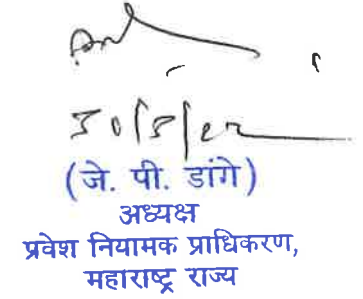 30/5/22
(जे. पी. डांगे)
अध्यक्ष
प्रवेश नियामक प्राधिकरण,
महाराष्ट्र राज्य